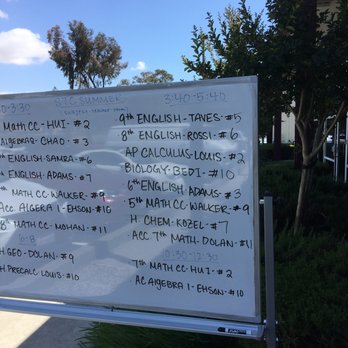 STC SUMMER
10-3:30
Math CC - HUI - #2
Algebra 2 - CHAO - #3
th ENGLISH - SAMRA - #6
th ENGLISH - ADAMS - #7
th MATH CC - WALKER - #8
Acc ALGEBRA 1 - EHSON - #10
8th MATH CC - MOHAN - #11
H GEO - DOLAN - #9
H PRECALC LOUIS - #10
3:40-5:40
9th ENGLISH - TANES - #5
8th ENGLISH - ROSSI - #6
AP CALCULUS - LOUIS - #2
BIOLOGY - BEDI - #10
6th ENGLISH - ADAMS - #3
5th MATH CC - WALKER - #9
H. CHEM - KOZEL - #7
ACC 7th MATH - DOLAN - #11
10:30-12:30
7th MATH CC - HUI - #2
AC ALGEBRA I - EHSON - #10